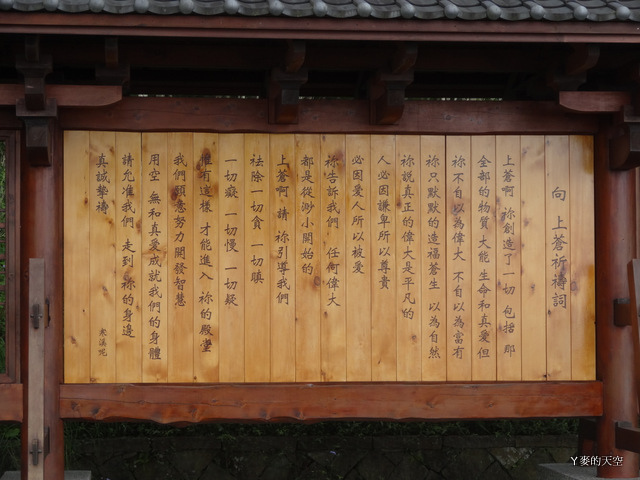 向 上蒼祈禱詞
上蒼啊 祢創造了一切 包括 那
全部的物質 大能 生命和真愛 但
祢不自以為偉大 不自以為富有
祢只默默的造福蒼生 以為自然
祢說真正的偉大是平凡的
人必因謙卑所以尊貴
必因愛人所以被愛
祢告訴我們 任何偉大
都是從渺小開始的
上蒼啊 請 祢引導我們
祛除一切貪 一切瞋
一切癡 一切慢 一切疑
唯有這樣 才能進入 祢的殿堂
我們願意努力開發智慧
用空 無和真愛成就我們的身體
請允准我們 走到 祢的身邊
真誠摯禱
丫麥的天空